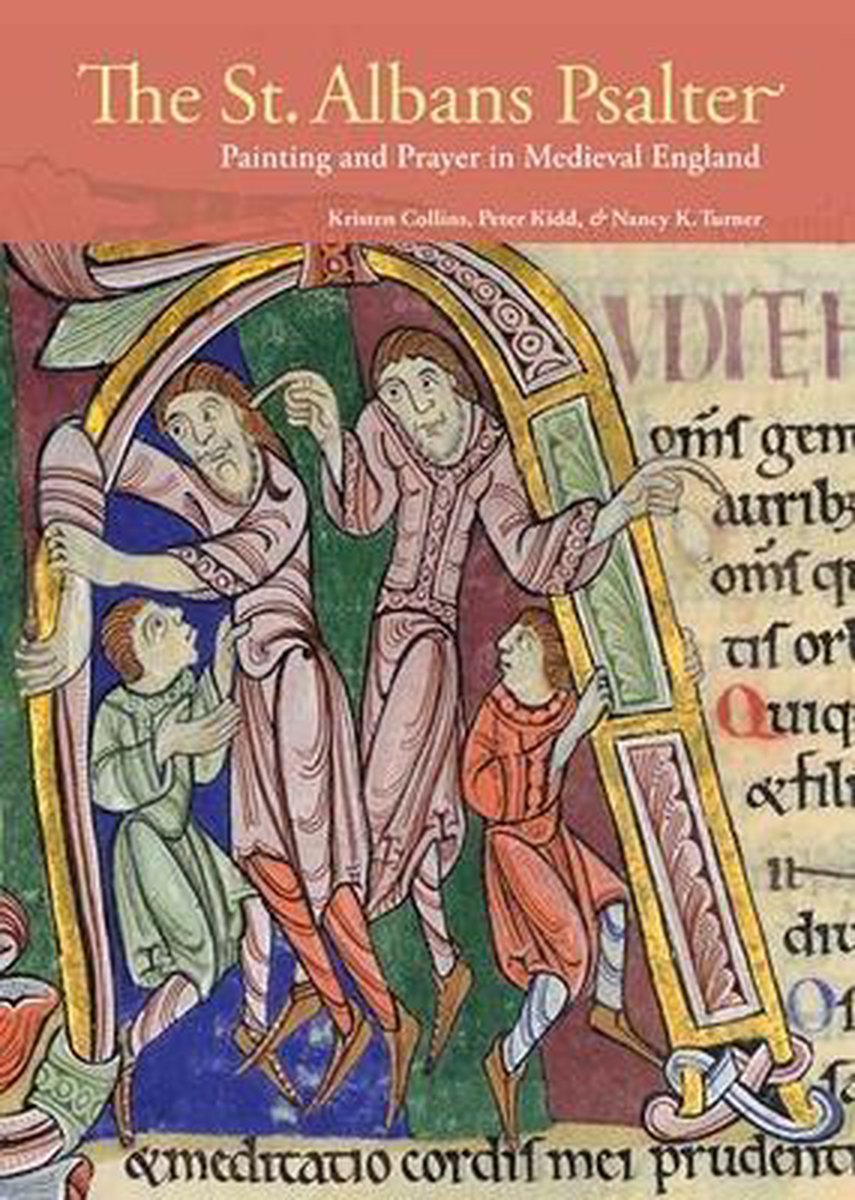 The St. Albans Psalter
Painting and Prayer in Medieval England
Kristen Collins, Peter Kidd, & Nancy K. Turner
VDITE H
om̄s gen
auribꝫ
om̄s q
tis orb
Quiq
&fili
u
diu
&meditatio cordis mei prudenti